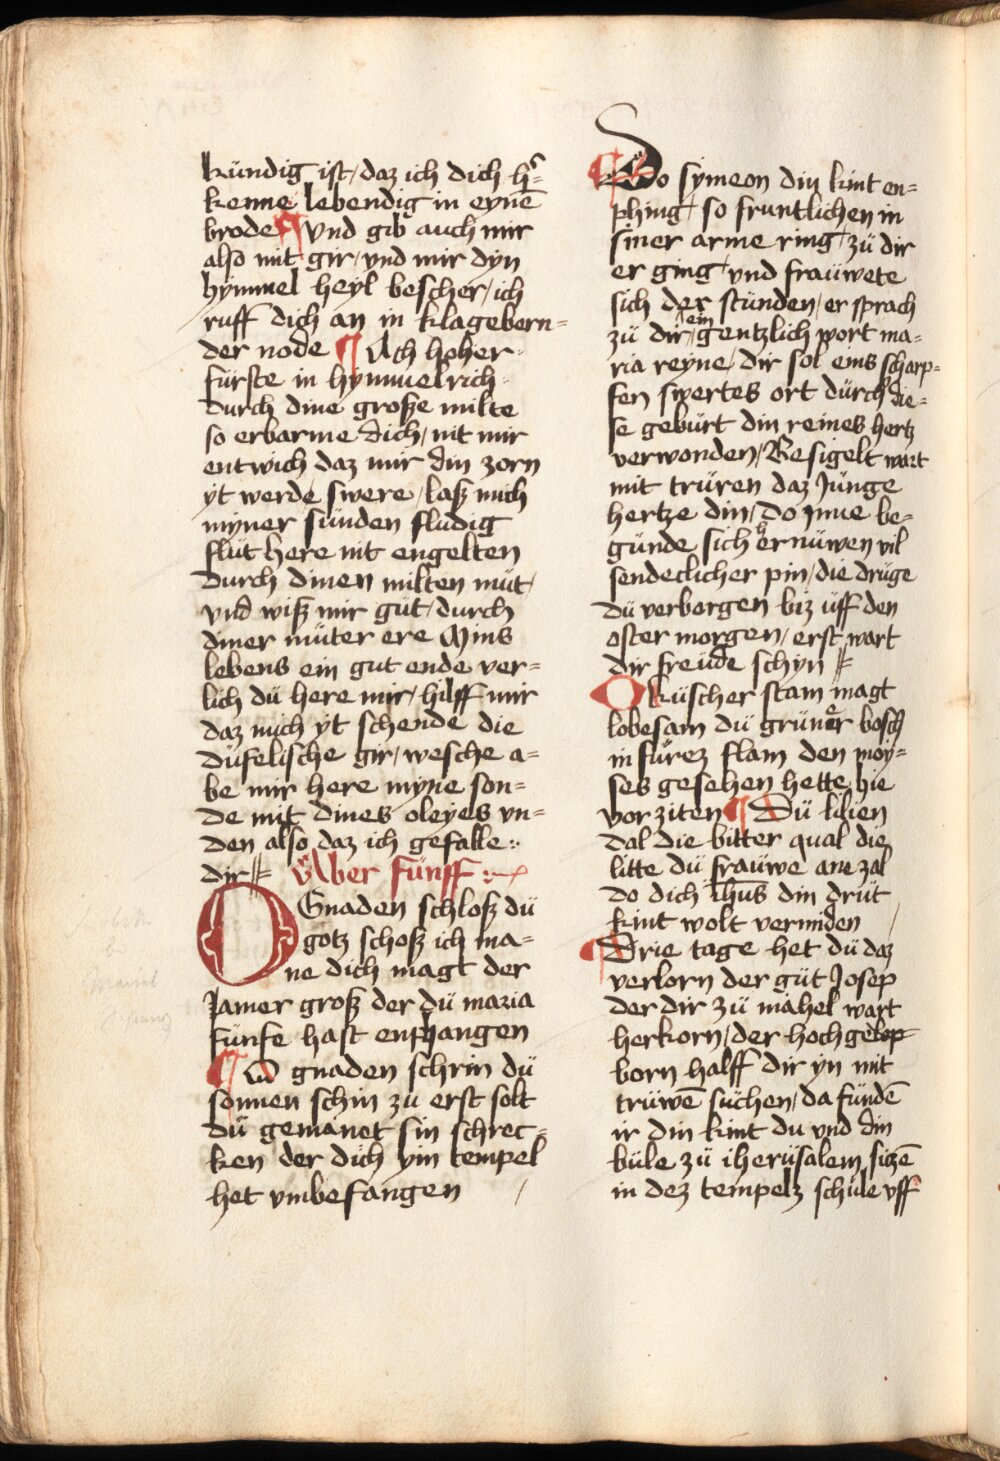 kündig ist / daz ich dich h͛=
kenne lebendig in eynē
brode ¶ Vnd gib auch mir
also mit gir / vnd mir dyn
hymmel heyl bescher / ich
ruff dich an in klagebern=
der node ¶ Ach hoher
fürste in hymmelrich
durch dine große milte
so erbarme dich / nit mir
entwich daz mir din zorn
yt werde swere / laß mich
myner sünden flüdig
flüt here nit engelten
durch dinen milten müt /
vnd wiß mir güt / durch
diner müter ere Mins
lebens ein gut ende ver=
lich dü here mir / hilff mir
daz mich yt schende die
düfelische gir / wesche a=
be mir here myne son=
de mit dines oleyes vn=
den also daz ich gefalle :
dir Aber fünff :
O Gnaden schloß dü
gotz schoß ich ma=
ne dich magt der
Jamer groß der dü maria
fünfe hast enphangen
¶ O gnaden schrin dü
sonnen schin zu erst solt
dü gemanet sin schrec=
ken der dich yin tempel
het vmbefangen
¶ Do symeon din kint en=
phing / so fruntlichen in
siner arme ring / zü dir
er ging / vnd fraüwete
sich der stünden / er sprach
zü dir / ein gentzlich wort ma=
ria reyne / dir sol eins scharp=
fen swertes ort dürch die=
se gebürt din reines hertz
verwonden / Besigelt wart
mit trüren daz Jünge
hertze din / Do inne be=
günde sich ernüwen vil
sendeclicher pin / die drüge
dü verborgen biz üff den
oster morgen / erst wart
dir freüde schyn
O küscher stam magt
lobesam dü grüner bosch
in fürez flam den moy=
ses gesehen hette hie
vor ziten ¶ Dü lilien
dal die bitter qual die
litte dü fraüwe ane zal
do dich Ihūs din drüt
kint wolt vermiden
¶ Drie tage het dü daz
verlorn der güt Josep
der dir zü mahel wart
herkorn / der hoch gelop
born halff dir yn mit
trüwē süchen / da fündē
ir din kint du vnd din
büle zü iherüsalem sitzē
in dez tempelz schüle vff